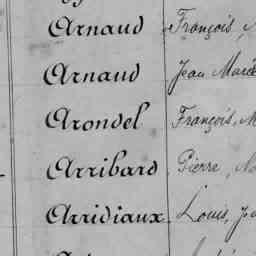 Arnaud François,
Arnaud Jean Marie
Arondel François, M
Arribard Pierre, Ma
Arridiaux Louis, Je